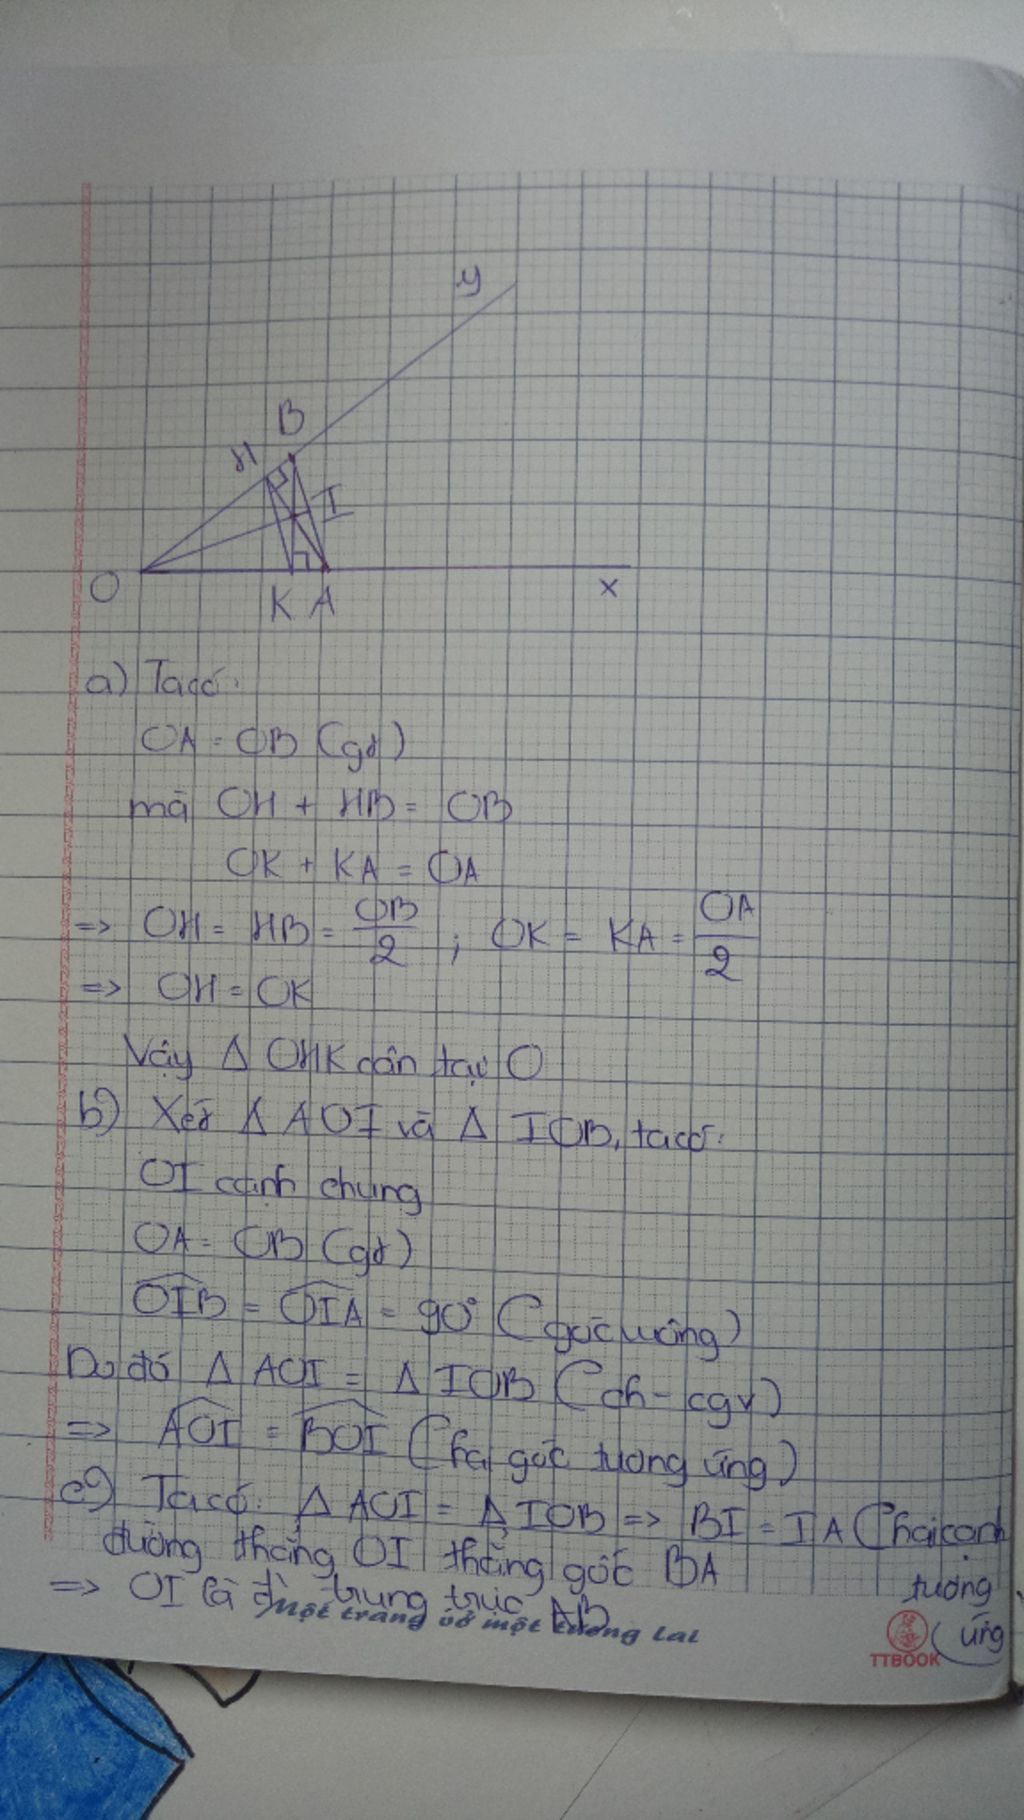 y
B
H
I
O
K A
x
a) Ta có:
OA = OB (gt)
mà OH + HB = OB
OK + KA = OA
=> OH = HB = OB/2 ; OK = KA = OA/2
=> OH = OK
Vậy Δ OHK cân tại O
b) Xét Δ AOI và Δ IOB, ta có:
OI cạnh chung
OA = OB (gt)
OIB = OIA = 90° (góc vuông)
Do đó Δ AOI = Δ IOB (ch - cgv)
=> AOI = BOI (hai góc tương ứng)
c) Ta có: Δ AOI = Δ IOB => BI = IA (hai cạnh
tương
ứng
đường thẳng OI thẳng góc BA
=> OI là đ̀ trung trực AB
Một trang vở một tương lai
TTBOOK